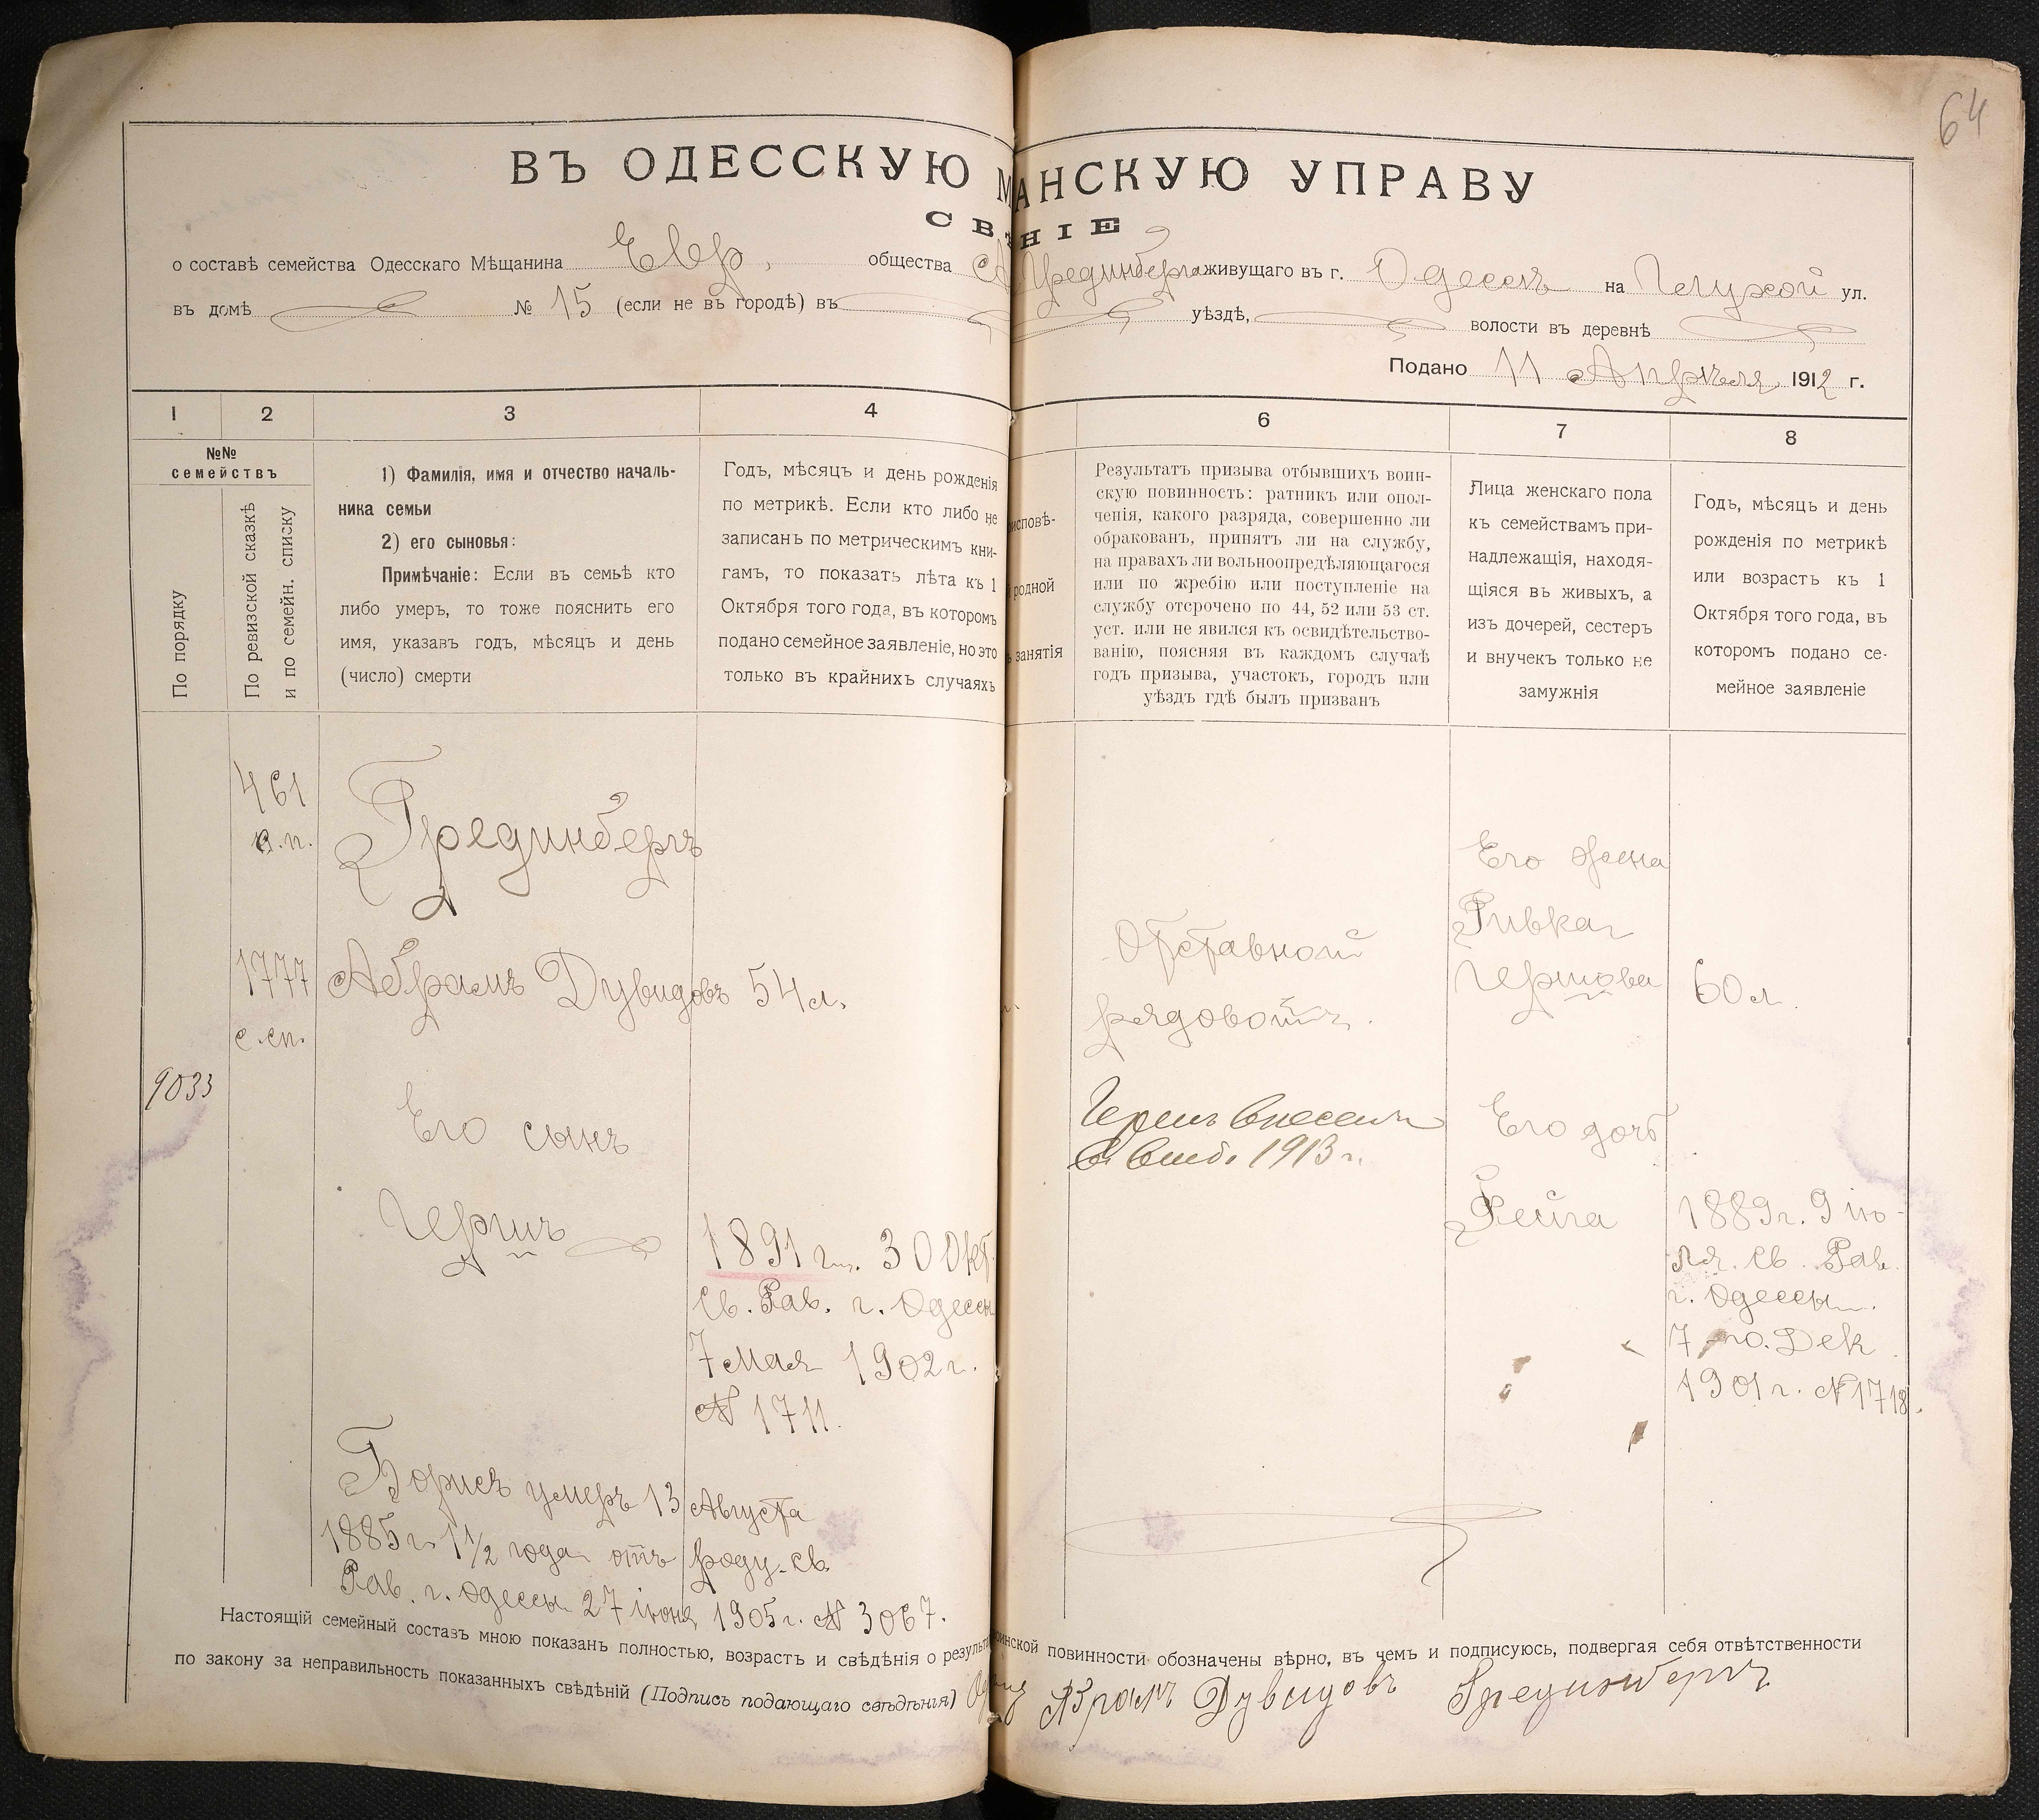 64
ВЪ ОДЕССКУЮ М АНСКУЮ УПРАВУ
СВ НІЕ
о составѣ семейства Одесскаго Мѣщанина Евр. общества А. Грединберга живущаго въ г. Одессѣ на Глухой ул.
въ домѣ № 15 (если не въ городѣ) въ уѣздѣ, волости въ деревнѣ
Подано 11 Апрѣля 1912 г.
1 2 3 4 6 7 8
№№
семействъ
По порядку
По ревизской сказкѣ
и по семейн. списку
1) Фамилія, имя и отчество началь-
ника семьи
2) его сыновья:
Примѣчаніе: Если въ семьѣ кто
либо умеръ, то тоже пояснить его
имя, указавъ годъ, мѣсяцъ и день
(число) смерти
Годъ, мѣсяцъ и день рожденія
по метрикѣ. Если кто либо не
записанъ по метрическимъ кни-
гамъ, то показать лѣта къ 1
Октября того года, въ которомъ
подано семейное заявленіе, но это
только въ крайнихъ случаяхъ
исповѣ-
родной
занятія
Результатъ призыва отбывшихъ воин-
скую повинность: ратникъ или опол-
ченія, какого разряда, совершенно ли
обракованъ, принятъ ли на службу,
на правахъ ли вольноопредѣляющагося
или по жребію или поступленіе на
службу отсрочено по 44, 52 или 53 ст.
уст. или не явился къ освидѣтельство-
ванію, поясняя въ каждомъ случаѣ
годъ призыва, участокъ, городъ или
уѣздъ гдѣ былъ призванъ
Лица женскаго пола
къ семействамъ при-
надлежащія, находя-
щіяся въ живыхъ, а
изъ дочерей, сестеръ
и внучекъ только не
замужнія
Годъ, мѣсяцъ и день
рожденія по метрикѣ
или возрастъ къ 1
Октября того года, въ
которомъ подано се-
мейное заявленіе
9033
461
1777
с. сп.
Грединбергъ
Абрамъ Дувидовъ 54 л.
Его сынъ
Гершъ
1891 г. 30 Окт.
Св. Рав. г. Одессы
7 Мая 1902 г.
№ 1711.
Борисъ умеръ 13 Августа
1885 г. 1 1/2 года отъ роду. св.
Рав. г. Одессы 27 іюня 1905 г. № 3067.
Отставной
рядовой
Гершъ внесенъ
1913 г.
Его жена
Ривка
Гершова
60 л.
Его дочь
Фейга
1889 г. 9 ію-
ля. Св. Рав.
г. Одессы
7 Дек
1901 г. № 1718.
Настоящій семейный составъ мною показанъ полностью, возрастъ и свѣдѣнія о результ воинской повинности обозначены вѣрно, въ чемъ и подписуюсь, подвергая себя отвѣтственности
по закону за неправильность показанныхъ свѣдѣній (Подпись подающаго свѣдѣнія) Абрамъ Дувидовъ Грединбергъ